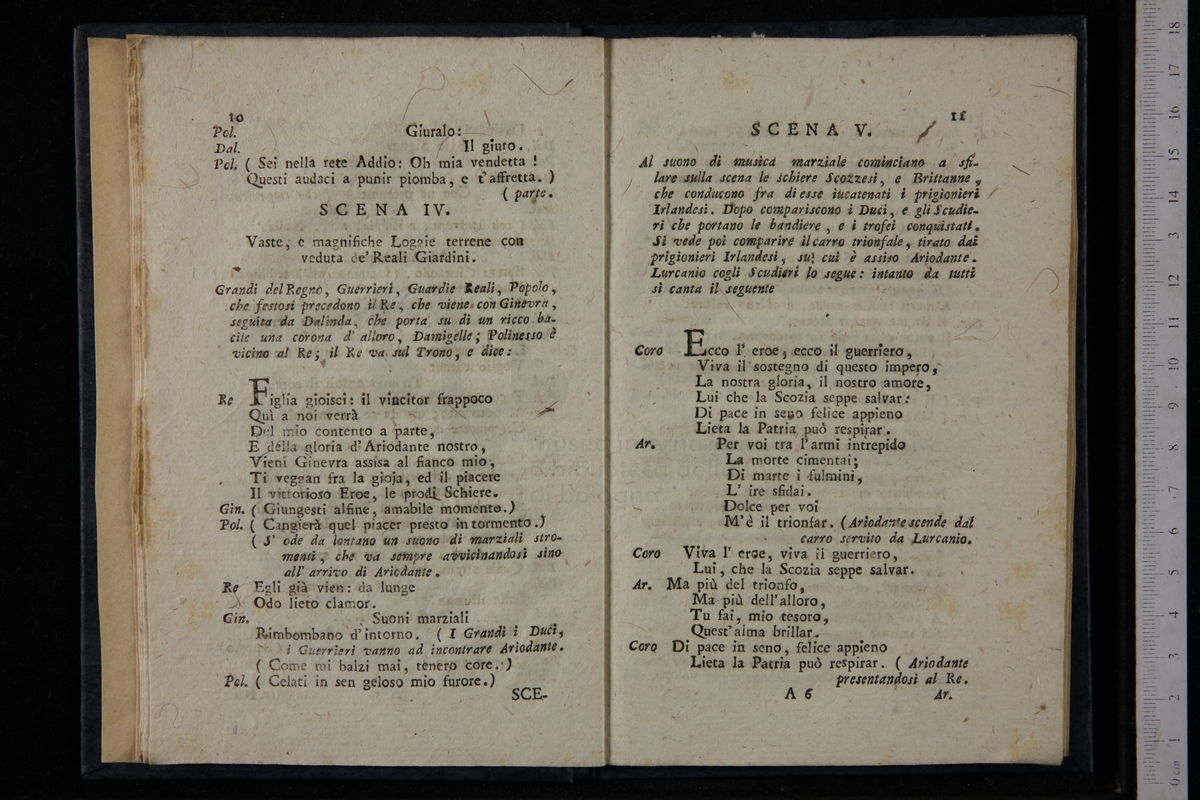 10
Pol. Giuralo:
Dal. Il giuro.
Pol. ( Sei nella rete Addio: Oh mia vendetta !
Questi audaci a punir piomba, e t'affretta. )
( parte.
SCENA IV.
Vaste, e magnifiche Loggie terrene con
veduta de' Reali Giardini.
Grandi del Regno, Guerrieri, Guardie Reali, Popolo,
che festosi precedono il Re, che viene con Ginevra,
seguita da Dalinda, che porta su di un ricco ba-
cile una corona d' alloro, Damigelle; Polinesso è
vicino al Re; il Re va sul Trono, e dice:
Re Figlia gioisci: il vincitor frappoco
Quì a noi verrà
Del mio contento a parte,
E della gloria d'Ariodante nostro,
Vieni Ginevra assisa al fianco mio,
Ti veggan fra la gioja, ed il piacere
Il vittorioso Eroe, le prodi Schiere.
Gin. ( Giungesti alfine, amabile momento.)
Pol. ( Cangierà quel piacer presto in tormento.)
( S' ode da lontano un suono di marziali stro-
menti, che va sempre avvicinandosi sino
all' arrivo di Ariodante.
Re Egli già vien: da lunge
Odo lieto clamor.
Gin. Suoni marziali
Rimbombano d'intorno. ( I Grandi i Duci,
i Guerrieri vanno ad incontrare Ariodante.
( Come mi balzi mai, tenero core. )
Pol. ( Celati in sen geloso mio furore.)
SCE-
11
SCENA V.
Al suono di musica marziale cominciano a sfi-
lare sulla scena le schiere Scozzesi, e Brittanne,
che conducono fra di esse iucatenati i prigionieri
Irlandesi. Dopo compariscono i Duci, e gli Scudie-
ri che portano le bandiere, e i trofei conquistati.
Si vede poi comparire il carro trionfale, tirato dai
prigionieri Irlandesi, sul cui è assiso Ariodante.
Lurcanio cogli Scudieri lo segue: intanto da tutti
si canta il seguente
Coro Ecco l' eroe, ecco il guerriero,
Viva il sostegno di questo impero,
La nostra gloria, il nostro amore,
Lui che la Scozia seppe salvar:
Di pace in seno felice appieno
Lieta la Patria può respirar.
Ar. Per voi tra l'armi intrepido
La morte cimentai;
Di marte i fulmini,
L' ire sfidai.
Dolce per voi
M'è il trionfar. (Ariodante scende dal
carro servito da Lurcanio.
Coro Viva l' eroe, viva il guerriero,
Lui, che la Scozia seppe salvar.
Ar. Ma più del trionfo,
Ma più dell'alloro,
Tu fai, mio tesoro,
Quest'alma brillar.
Coro Di pace in seno, felice appieno
Lieta la Patria può respirar. ( Ariodante
presentandosi al Re.
A 6 Ar.
0 cm 1 2 3 4 5 6 7 8 9 10 11 12 13 14 15 16 17 18